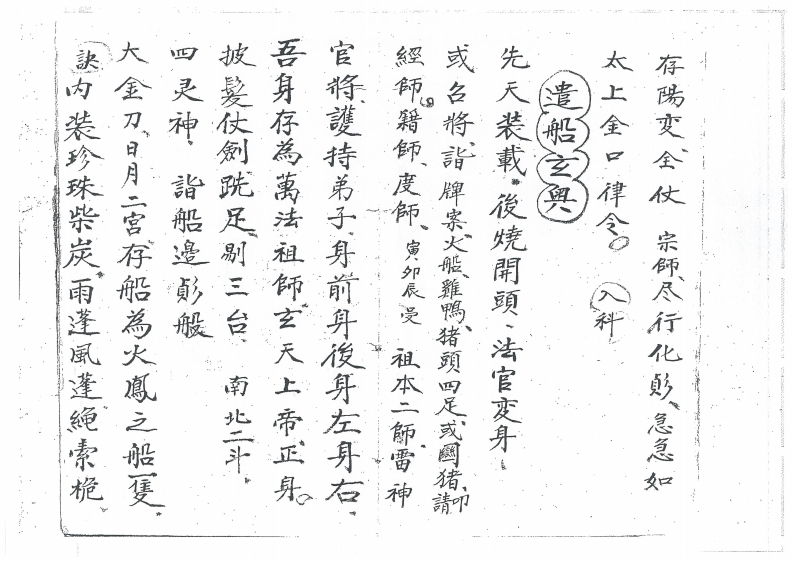 存陽変全仗 宗師尽行化𧵳急急如
太上金口律令 入科
遣船玄奥
先天装載後燒開頭法官変身
或召將詣牌案火船雞鴨猪頭四足或猪叩請
經師籍師度師 寅卯辰 祖本二師雷神
官將護持弟子身前身後身左身右
吾身存為萬法祖師玄天上帝正身
披髮仗劍跣足剔三台 南北二斗
四灵神 詣船邊船
大金刀日月二宮存船為火鳳之船一隻
訣內装珍珠柴炭雨蓬風蓬繩索桅